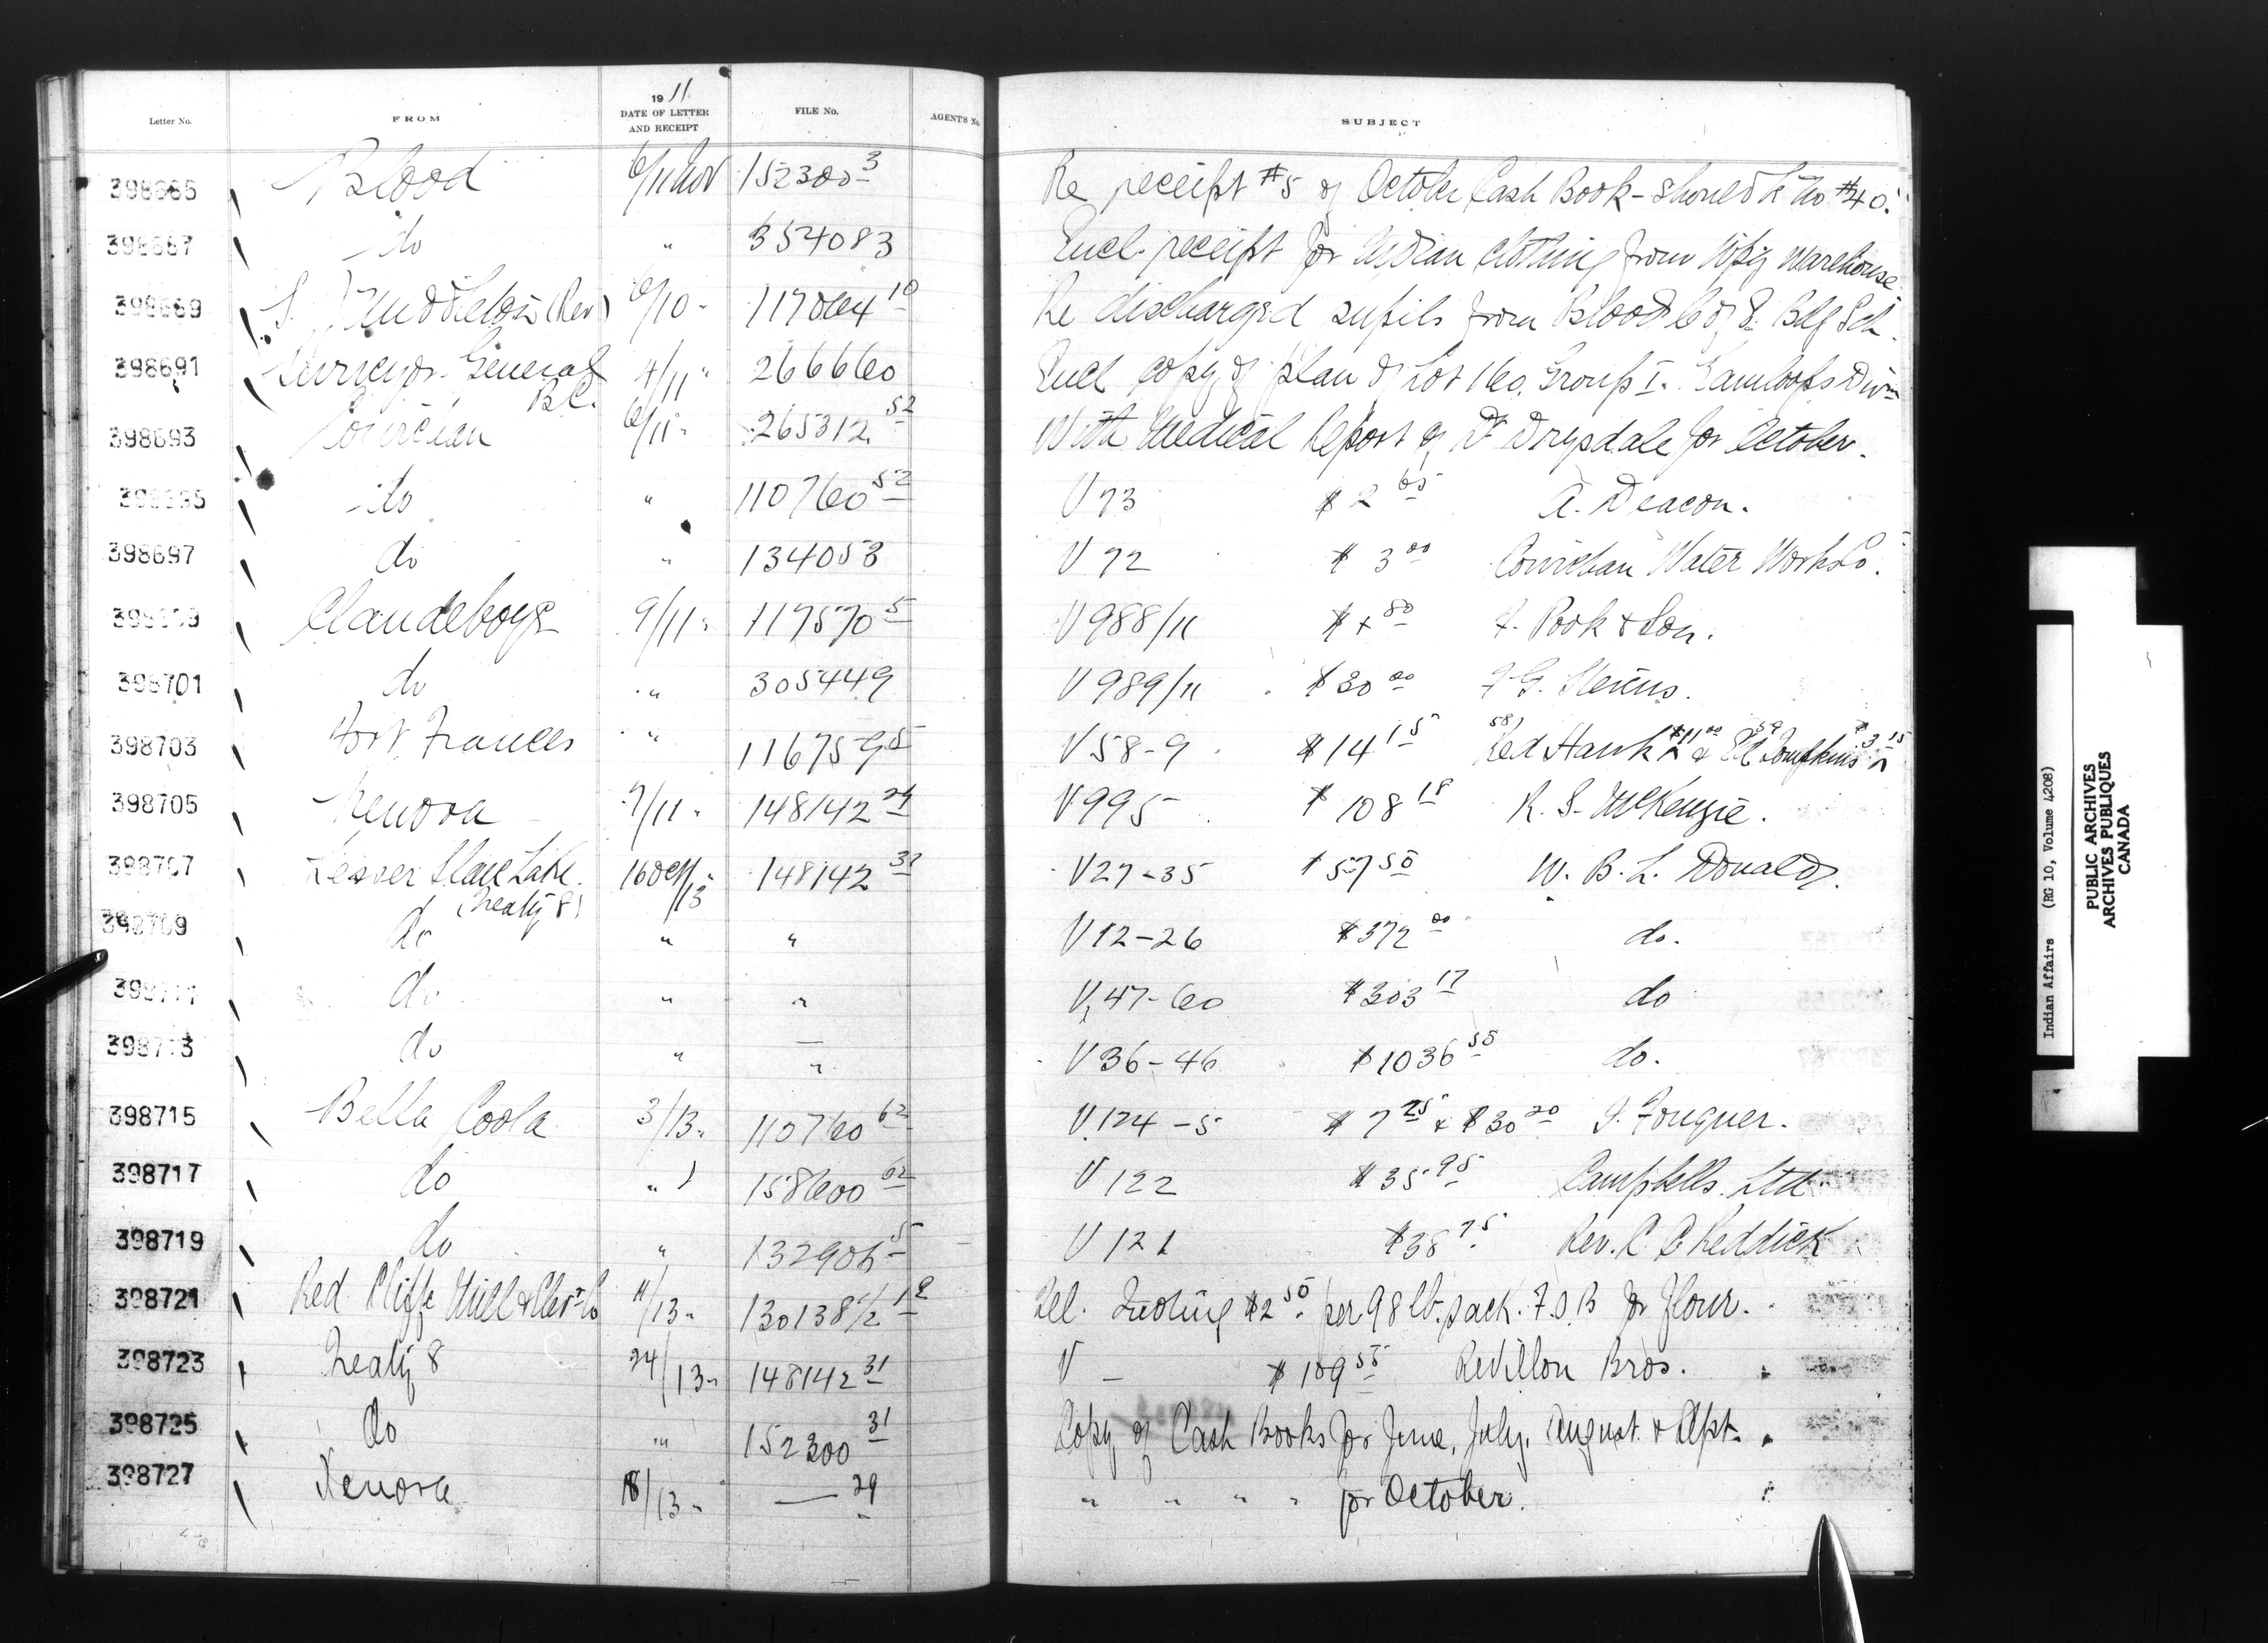 1911
Letter No. FROM DATE OF LETTER AND RECEIPT FILE No. AGENT'S No. SUBJECT
398685 Blood 6/11 Nov 152300-3 Re receipt #5 of October Cash Book - should be no #40.
398687 do " 354083 Encl. receipt for Indian clothing from Wpg Warehouse
398689 S. Middleton (Rev) 6/10 " 117064-10 Re discharged pupils from Blood C of E. Bdg Sch.
398691 Surveyor General B.C. 4/11 " 266660 Encl copy of plan of Lot 160. Group I. Kamloops Divn
398693 Cowichan 6/11 " 265312-52 With Medical Report of Dr Drysdale for October.
398695 do " 110760-52 V 73 $2 65 A. Deacon.
398697 do " 134058 V 72 $3 00 Cowichan Water Works Co.
398699 Clandeboye 9/11 " 117570-5 V 988/11 80 F. Pook & Son.
398701 do " 305449 V 989/11 $30 00 F G.
398703 Fort Frances " 116759-5 V 58-9 $14 15 58) Red Hawk $11 00 & 59 Ed Tompkins $3 15
398705 Kenora 7/11 " 148142-29 V 995 $108 18 R. S. McKenzie.
398707 Lesser Slave Lake. (Treaty 8) 16 Oct/13 " 148142-31 V 27-35 $57 50 W. B. L. Donald.
398709 do " " V 12-26 $372 00 do.
398711 do " " V 47-60 $303 17 do
398713 do " — " V 36-46 $1036 55 do.
398715 Bella Coola 3/13 " 110760-62 V 124-5 $7 25 & $30 20 I. Fougner.
398717 do " 158600-62 V 122 $35 95 Campbells Ltd
398719 do " 132906-5 V 121 $38 75 Rev. R. C. Reddick
398721 Red Cliffe Mill & Elevr Co 11/13 " 130138 1/2-12 Tel. Quoting $2 50 per 98 lb. sack. F.O.B for flour.
398723 Treaty 8 24/13 " 148142-31 V - $109 55 Revillon Bros.
398725 do " 152300-31 Copy of Cash Books for June, July, August & Sept.
398727 Kenora 8/13 " — 29 " " " " for October.
Indian Affairs (RG 10, Volume 4208)
PUBLIC ARCHIVES
ARCHIVES PUBLIQUES
CANADA